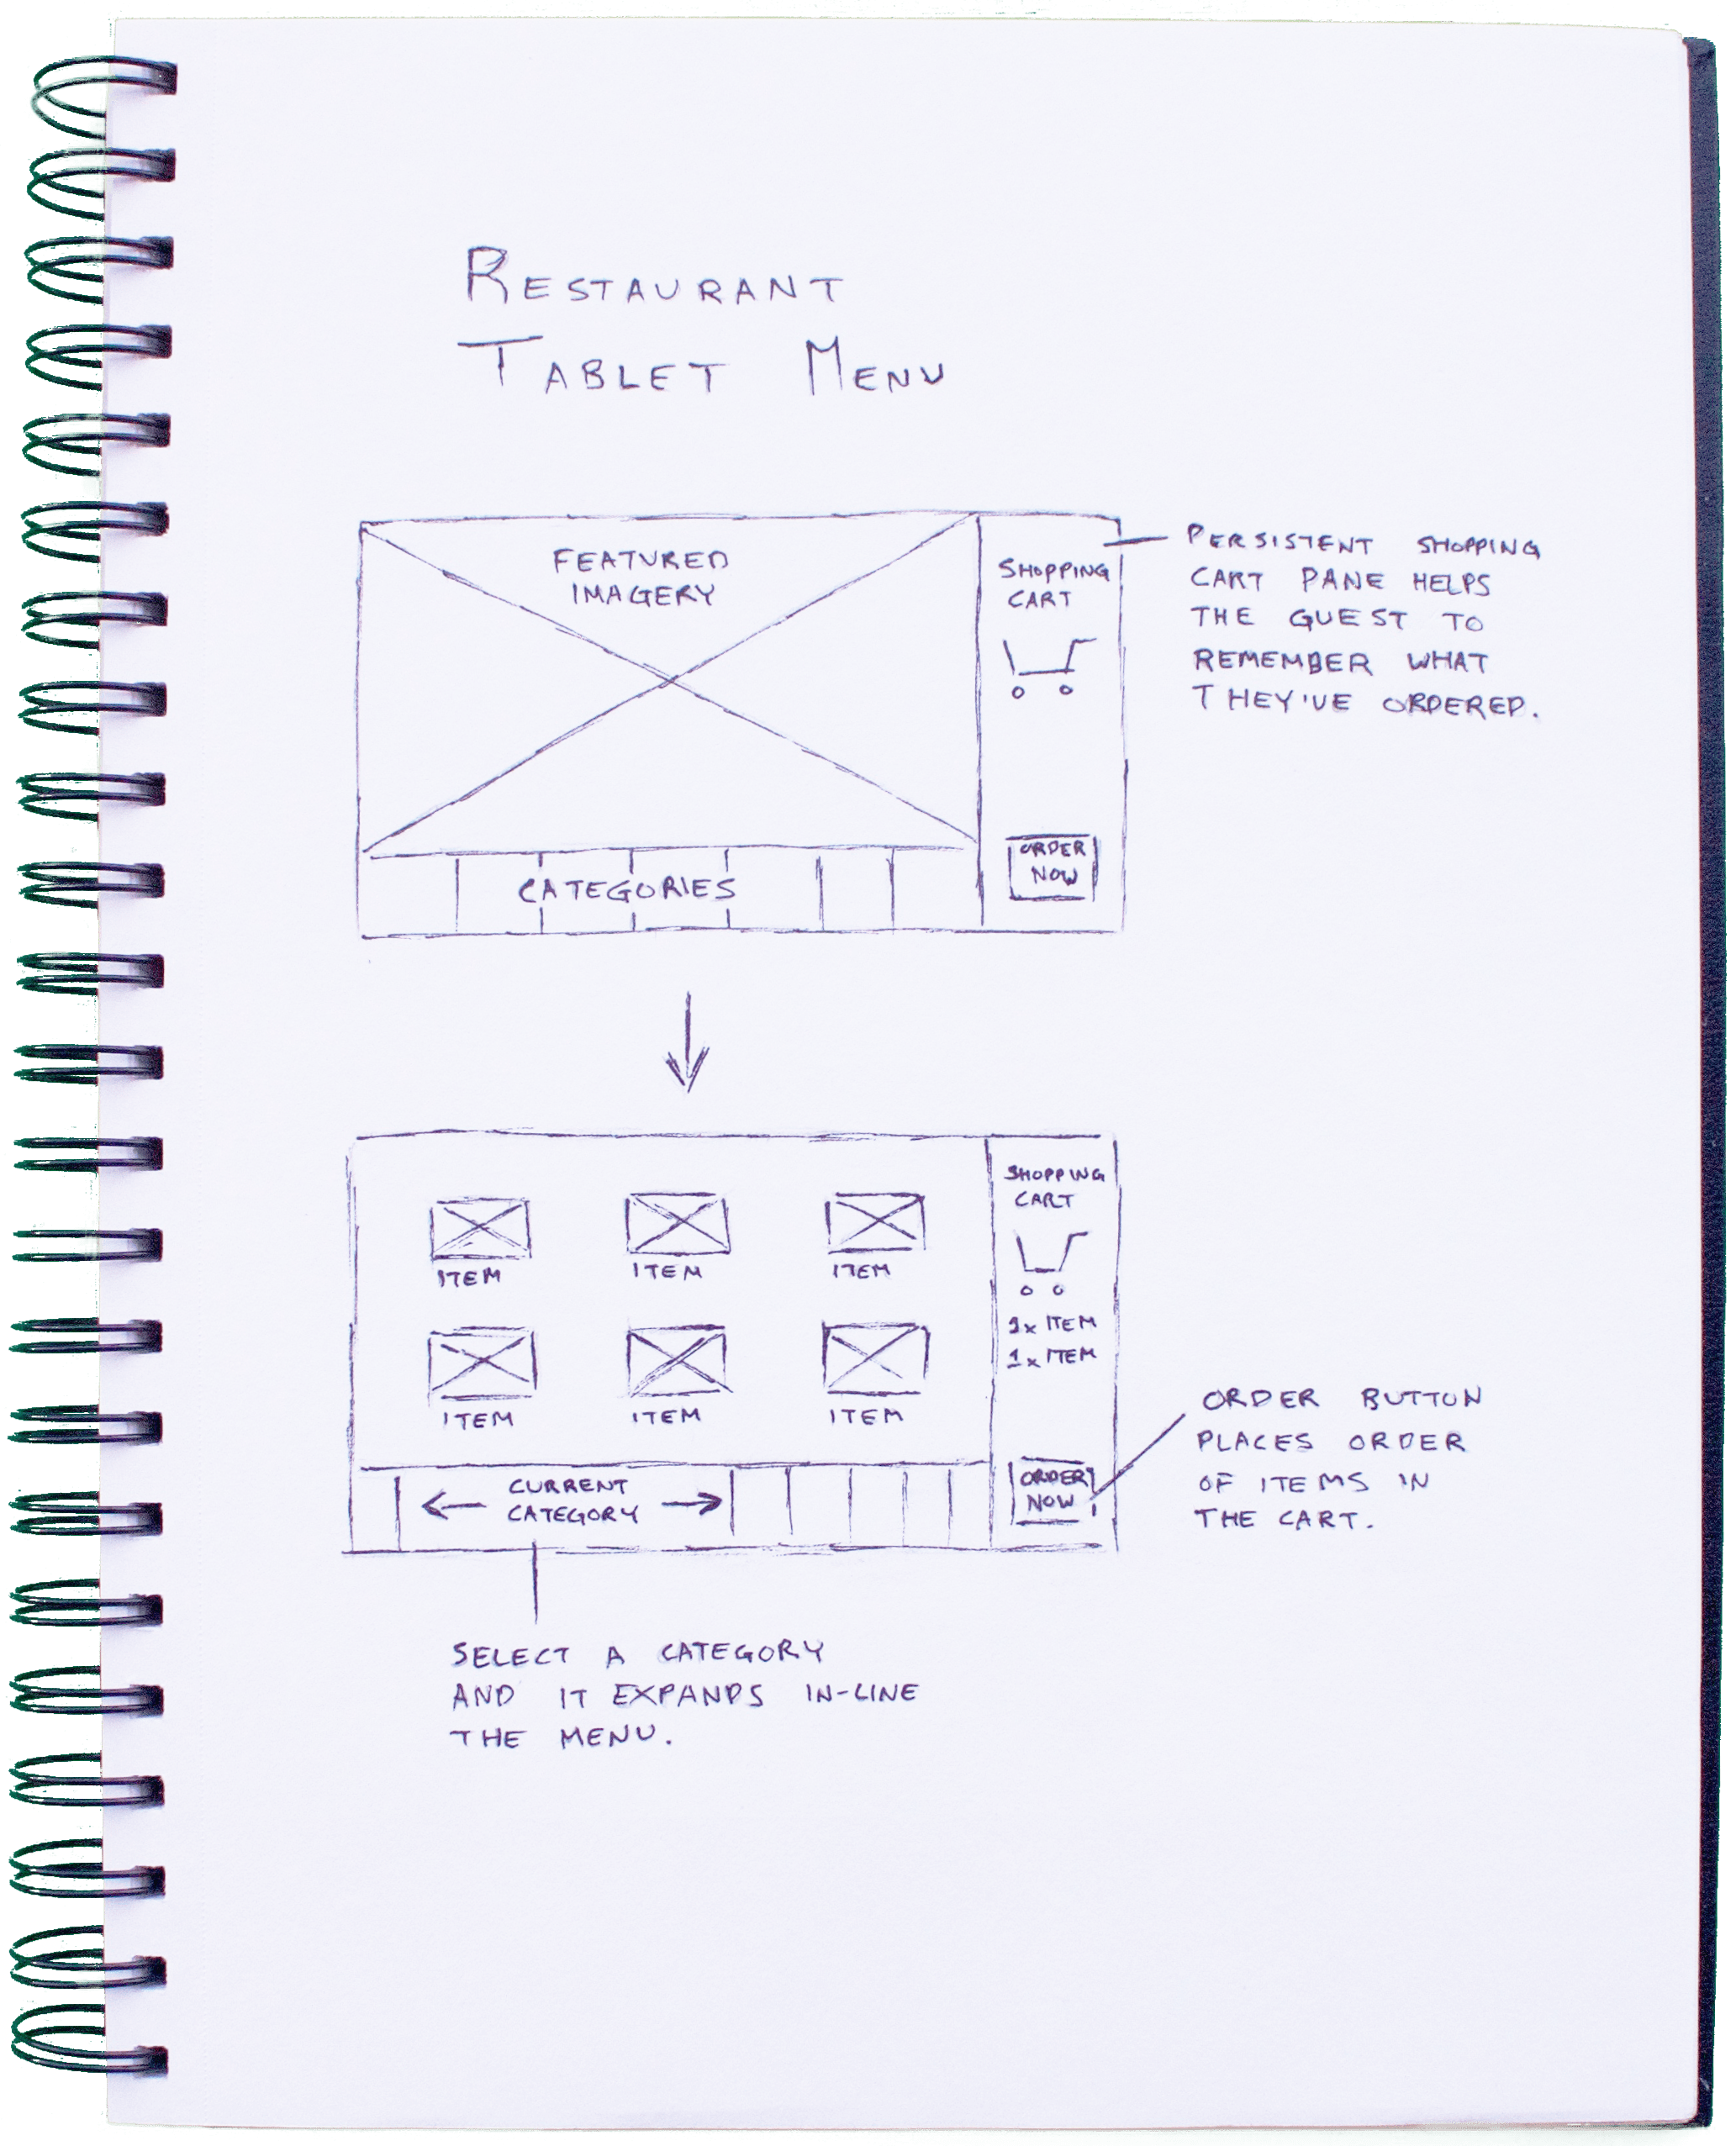 RESTAURANT
TABLET MENU
FEATURED
IMAGERY
SHOPPING
CART
ORDER
NOW
CATEGORIES
PERSISTENT SHOPPING
CART PANE HELPS
THE GUEST TO
REMEMBER WHAT
THEY'VE ORDERED.
ITEM ITEM ITEM
ITEM ITEM ITEM
SHOPPING
CART
1x ITEM
1x ITEM
ORDER
NOW
CURRENT
CATEGORY
ORDER BUTTON
PLACES ORDER
OF ITEMS IN
THE CART.
SELECT A CATEGORY
AND IT EXPANDS IN-LINE
THE MENU.